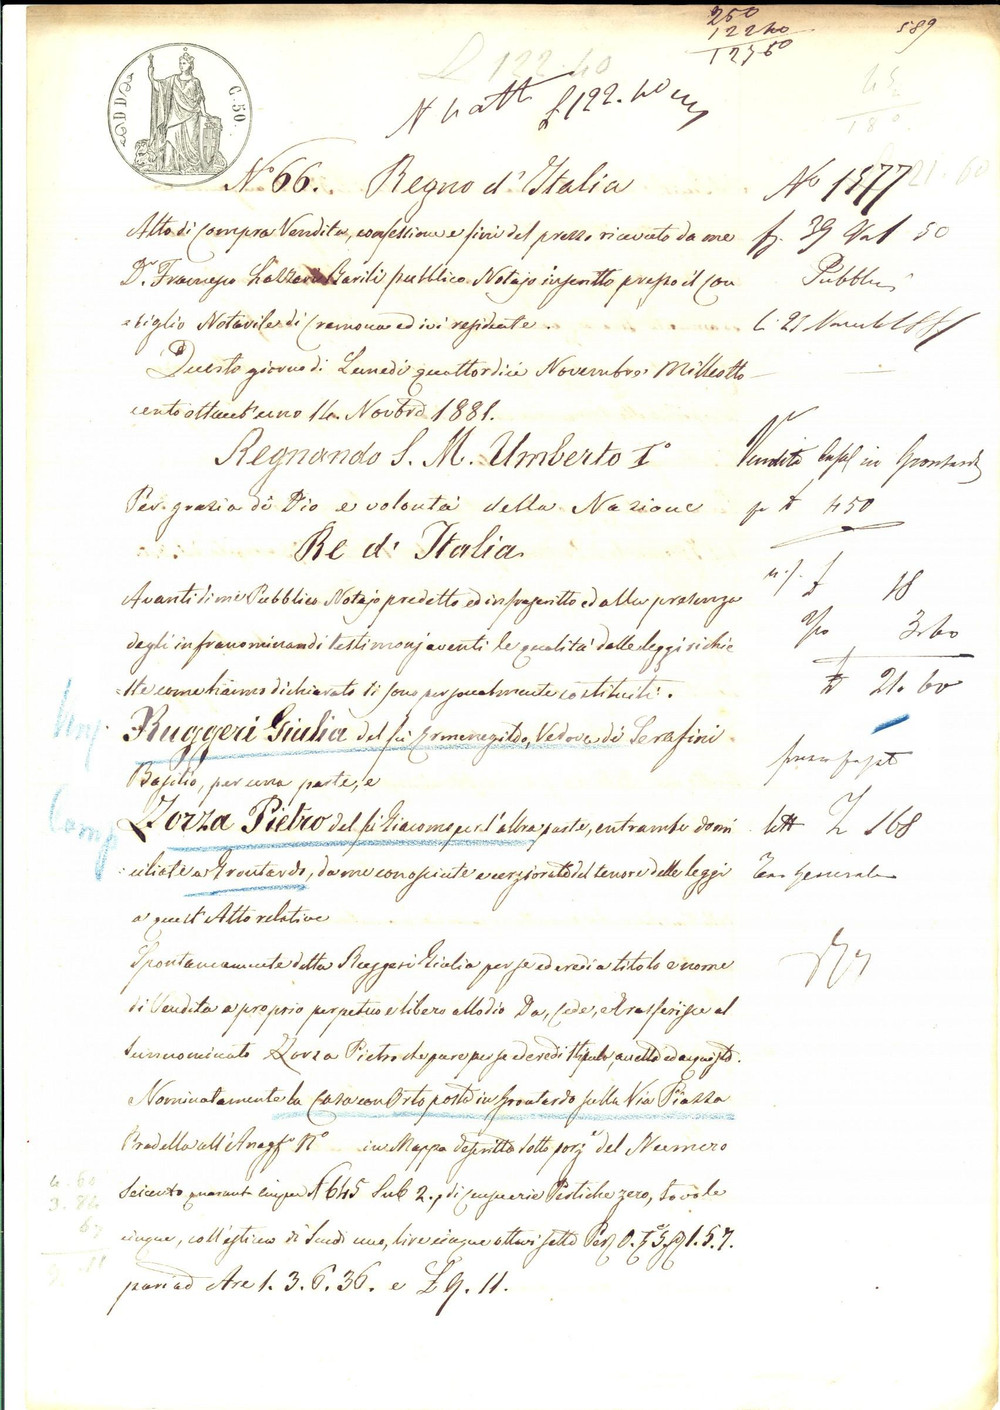 250
122 40
125 60
589
L 122.40
N 4 atti £ 122.40
C. 50.
N.° 66. Regno d'Italia
N° 1577
21.60
Atto di Compra Vendita, confessione e fine del prezzo ricevuto da me
f. 39 Vol 50
D.r Francesco Barili pubblico Notajo inscritto presso il Con
Pubblici
=siglio Notarile di Cremona ed ivi residente.
li 21 Novemb 1881
Questo giorno di Lunedì quattordici Novembre Milleotto
cento ottant'uno 14. Novbre 1881.
Regnando S. M. Umberto I°
Vendita Casa in Grontardo
Per grazia di Dio e volontà della Nazione
p £ 450
Re d'Italia
Avanti di me Pubblico Notajo predetto ed infrascritto ed alla presenza
£ 18
degli infranominandi testimonj aventi le qualità dalle leggi richie
3.60
=ste come hanno dichiarato si sono personalmente costituiti.
£ 21.60
Ruggeri Giulia del fu Ermenegildo, Vedova di Serafini
Basilio, per una parte, e
Comp
Zorza Pietro del fu Giacomo per l'altra parte, entrambi domi
168
=ciliati a Grontardo, da me conosciuti e cerziorati del tenore delle leggi
Generale
a quest'Atto relative
Spontaneamente detta Ruggeri Giulia per se ed eredi a titolo e nome
di Vendita a proprio perpetuo e libero allodio Da, Cede, e trasferisce al
sunnominato Zorza Pietro che pure per se ed eredi stipula, accetta ed acquista.
Nominatamente la Casa con Orto posta in Grontardo sulla Via Piazza
Bradella all'Anagf.° N° in Mappa descritta sotto porz.e del Numero
Seicento quarant cinque N 645 Sub 2., di censuarie Pertiche zero, tavole
cinque, coll'estimo di Scudi uno, lire cinque ottavi sette Per 0. T.e 5. S 1. 5. 7.
pari ad Are 1. 3. 6. 36. e £ 9. 11.